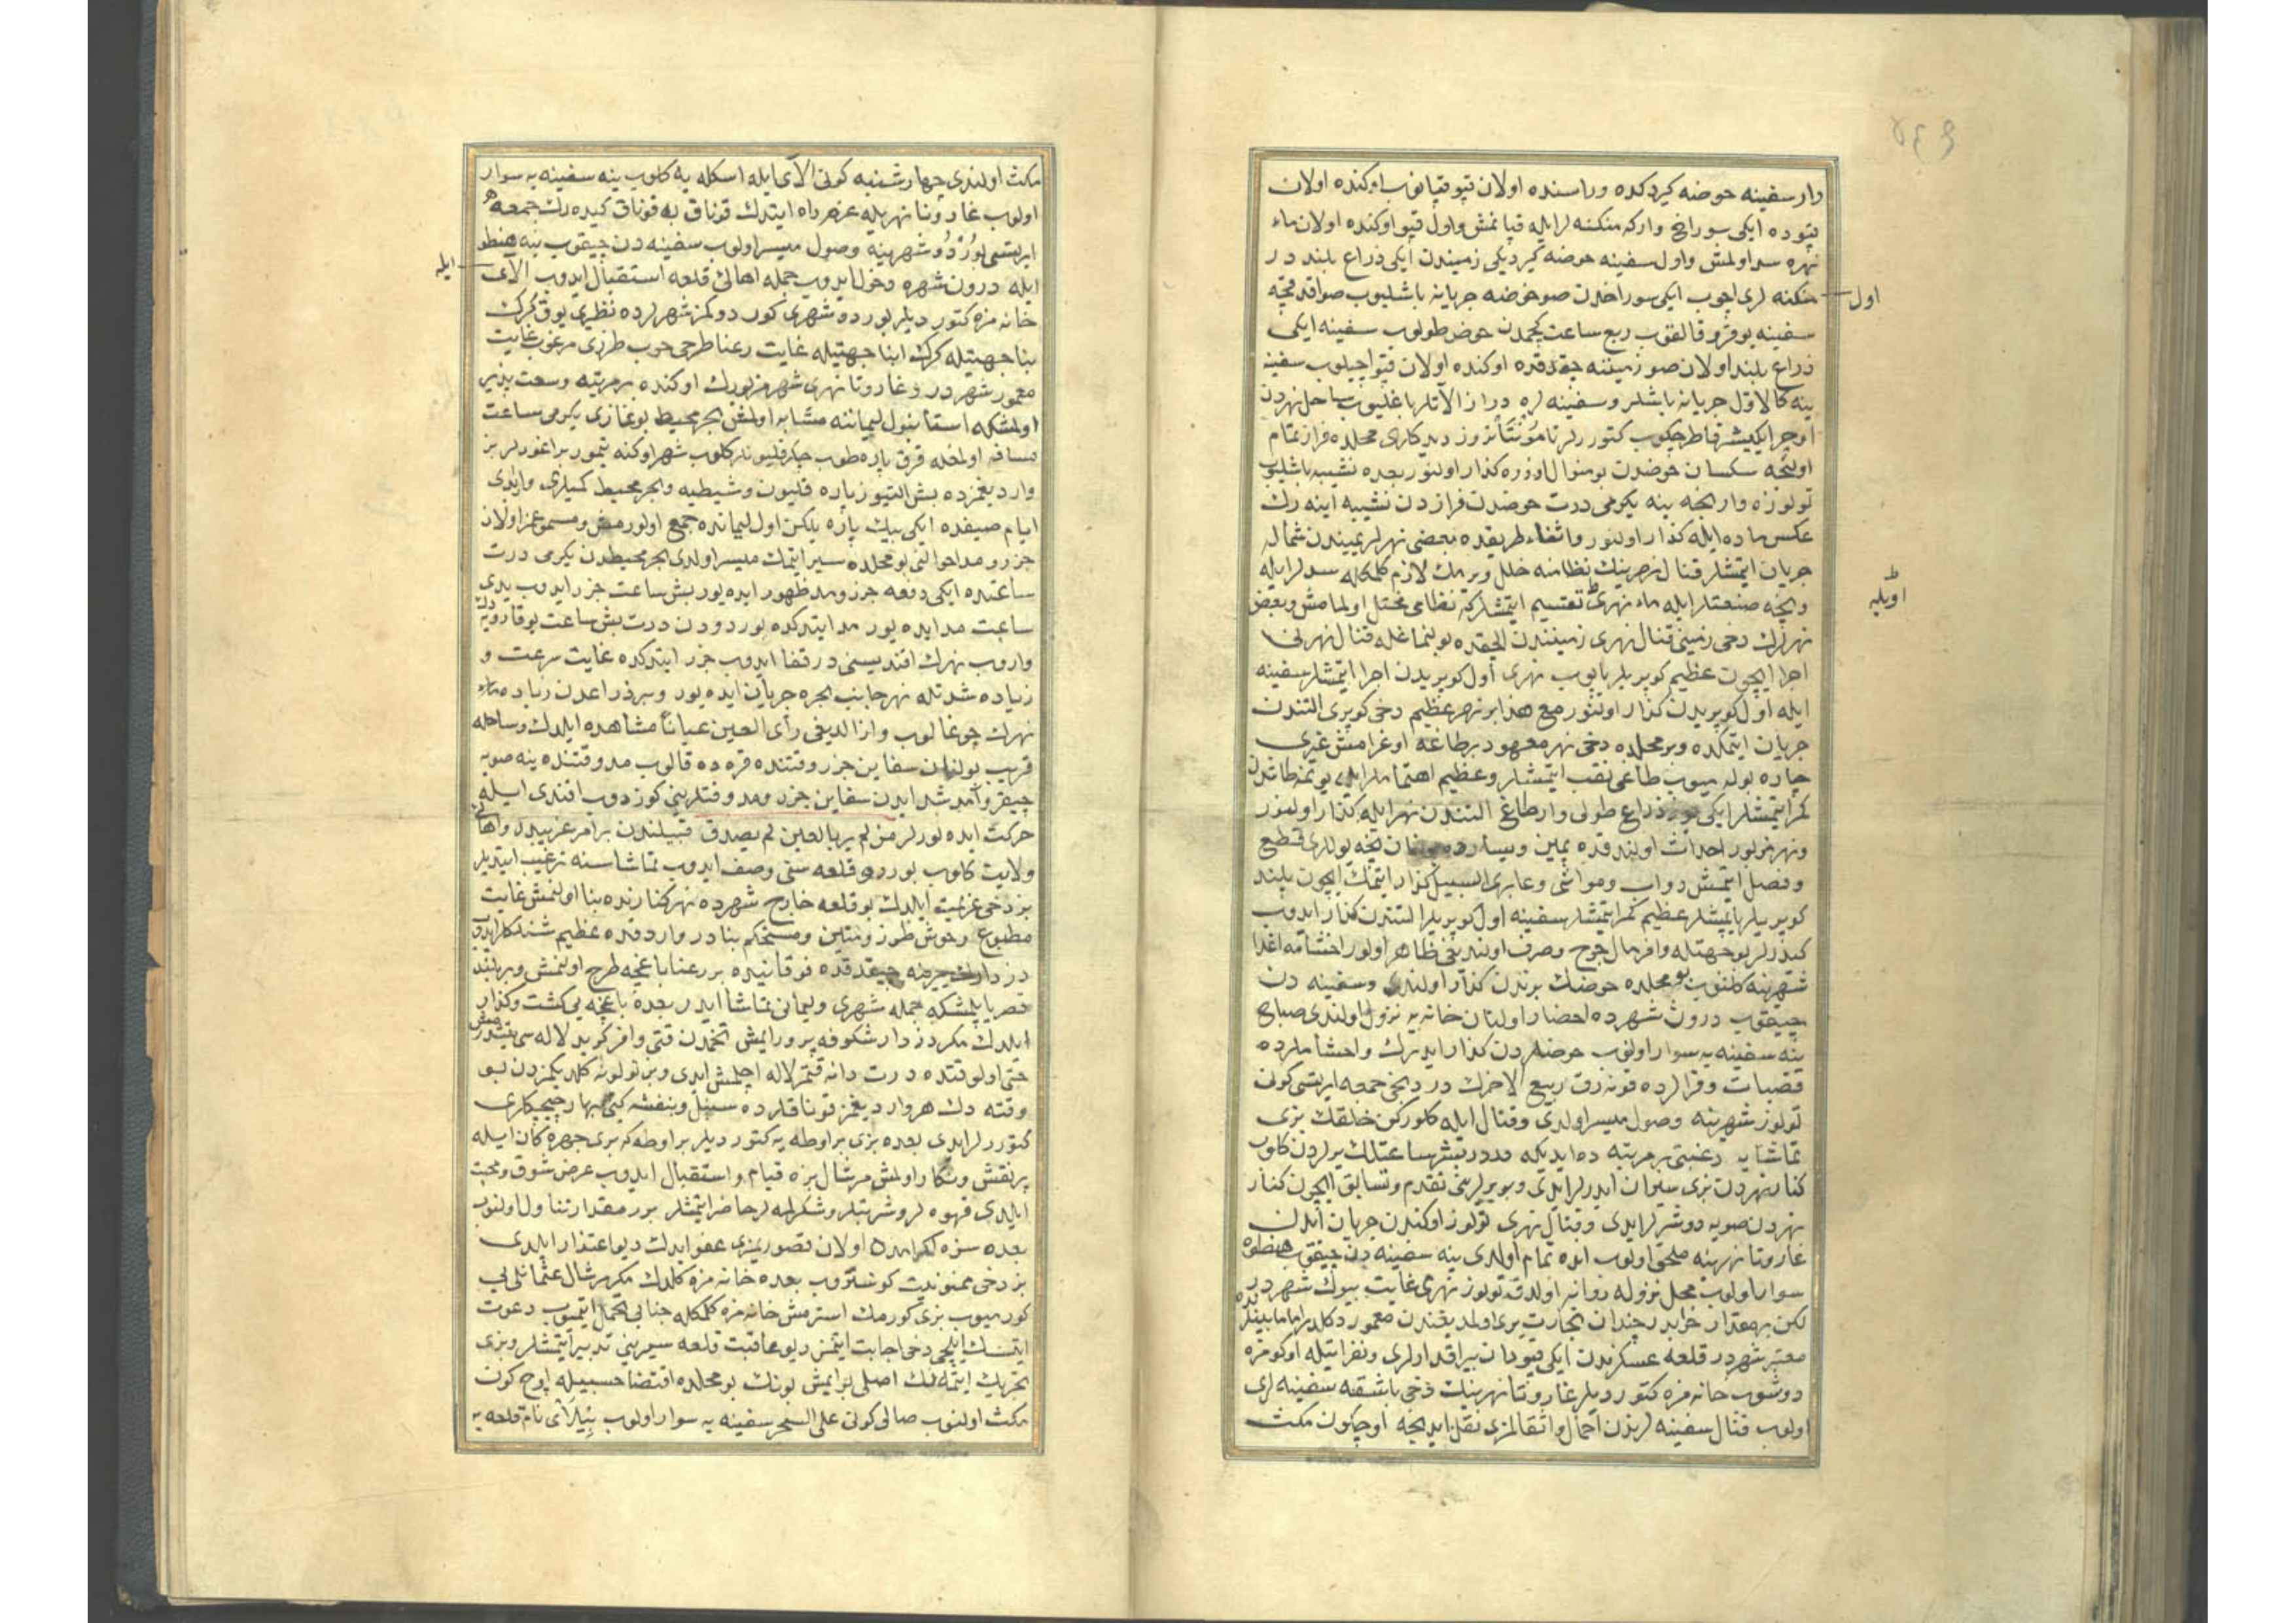 ٤٤٩
دار سفینه حوضه کیردکده وراسنده اولان قپو قپانوب اوکنده اولان
قپوده ایکی سوراخ وارکه منکنه لر ایله قپانمش واول قپو اوکنده اولان ماء
نهره سد اولمش واول سفینه حوضه کیردیکی زمیندن ایکی ذراع بلند در
اول
منکنه لری اچوب ایکی سوراخدن صو حوضه جریانه باشلیوب صو اقدقچه
سفینه یوقرو قالقوب ربع ساعت کچمدن حوض طولوب سفینه ایکی
ذراع بلند اولان صو زمیننه چقدقده اوکنده اولان قپو اچیلوب سفینه
ینه کالاول جریانه باشلر وسفینه لره دراز آلاتلر باغلیوب ساحل نهردن
اوچر ایکیشر قاطر چکوب کتوررلر تا مونتانروز دیدکلری محلده فراز تمام
اولنجه سکسان حوضدن بو منوال اوزره کذار اولنور بعده نشیبه باشلیوب
تولوزه وارنجه ینه یکرمی درت حوضدن فرازدن نشیبه اینه رك
عکس ماده ایله کذار اولنور واثناء طریقده بعضی نهرلر یمیندن شماله
جریان ایتمشلر قنال نهرینك نظامنه خلل ویرمك لازم کلمکله سدلر ایله
اویله
ونیجه صنعتلر ایله ماء نهری تقسیم ایتمشلرکه نظامی مختل اولمامش وبعض
نهرلرك دخی زمینی قنال نهری زمینندن الچقده بولنماغله قنال نهرنی
اجرا ایچون عظیم کوپریلر یاپوب نهری اول کوپریدن اجرا ایتمشلر سفینه
ایله اول کوپریدن کذار اولنور مع هذا بر نهر عظیم دخی کوپری التندن
جریان ایتمکده وبر محلده دخی نهر معهود بر طاغه اوغرامش غیری
چاره بولمیوب طاغی نقب ایتمشلر وعظیم اهتماملر ایله یونتمه طاشدن
کمر ایتمشلر ایکی یوز ذراع طولی وار طاغ التندن نهر ایله کذار اولنور
ونهر مزبور احداث اولندقده یمین ویساردن نیجه یوللری قطع
وفصل ایتمش دواب ومواشی وعابری السبیل کذار ایتمك ایچون بلند
کوپریلر یاپمشلر عظیم کمر ایتمشلر سفینه اول کوپریلر التندن کذار ایدوب
کیدرلر بو جهتله وافر مال خرج وصرف اولندیغی ظاهر اولور اخشامه اغدا
شهرینه کلنوب بو محلده حوضك برندن کذار اولندی وسفینه دن
چیقوب درون شهرده احضار اولنان خانه یه نزول اولندی صباح
ینه سفینه یه سوار اولنوب حوضلردن کذار ایدرك واخشاملرده
قصبات وقرالرده قونه رق ربیع الاخرك دردنجی جمعه ایرتسی کونی
تولوز شهرینه وصول میسر اولدی وقنال ایله کلورکن خلقك بزی
تماشایه رغبتی بر مرتبه ده ایدیکه دردر بشر ساعتلك یرلردن کلوب
کنار نهردن بزی سیران ایدرلر ایدی وبربرلرینی تقدم وتسابق ایچون کنار
نهردن صویه دوشرلر ایدی وقنال نهری تولوز اوکندن جریان ایدن
غارونا نهرینه ملحق اولوب انده تمام اولدی ینه سفینه دن چیقوب هنطوه
سوار اولوب محل نزوله روانه اولدق تولوز شهری غایت بیوك شهردر
لکن بر مقدار خرابدر چندان تجارت یری اولمدیغندن معمور دکلدر اما مابینلرنده
معتبر شهردر قلعه عسکرندن ایکی قپودان بیراقدارلری ونفراتیله اوکومزه
دوشوب خانه مزه کتوردیلر غارونا نهرینك دخی باشقه سفینه لری
اولوب قنال سفینه لرندن احمال واثقالمزی نقل ایدنجه اوچ کون مکث
مکث اولندی چهارشنبه کونی آلای ایله اسکله یه کلوب ینه سفینه یه سوار
اولوب غارونا نهریله عزم راه ایتدك قوناق به قوناق کیده رك جمعه
ایرتسی بوردو شهرینه وصول میسر اولوب سفینه دن چیقوب ینه هنطو
ایله
ایله درون شهره دخول ایدوب جمله اهالئ قلعه استقبال ایدوب آلای
خانه مزه کتوردیلر بورده شهری کوردوکمز شهرلرده نظیری یوق کرك
بنا جهتیله کرك ابنا جهتیله غایت رعنا طرحی خوب طرزی مرغوب غایت
معمور شهردر وغارونا نهری شهر مزبورك اوکنده بر مرتبه وسعت پذیر
اولمشکه استانبول لیماننه مشابه اولمغن بحر محیط بوغازی یکرمی ساعت
مسافه اولمغله قرق پاره طوب چکر قلیونلر کلوب شهر اوکنه تیمور براغورلر بز
واردیغمزده بش التیوز پاره قلیون وشیطیه وبحر محیط کمیلری وارایدی
ایام صیفده ایکی بیك پاره یلکن اول لیمانده جمع اولورمش ومسموعمز اولان
جزر ومد احوالنی بو محلده سیر ایتمك میسر اولدی بحر محیطدن یکرمی درت
ساعتده ایکی دفعه جزر ومد ظهور ایده یور بش ساعت جزر ایدوب یدی
ساعت مد ایده یور مد ایتدکده بوردودن درت بش ساعت یوقارویه دك
واروب نهرك افندیسنی درقفا ایدوب جزر ایتدکده غایت سرعت و
زیاده شدتله نهر جانب بحره جریان ایده یور وبر ذراعدن زیاده ماء
نهرك چوغالوب وازالدیغی رأی العین عیانا مشاهده ایلدك وساحله
قریب بولنان سفاین جزر وقتنده قره ده قالوب مد وقتنده ینه صویه
چیقر وآمد شد ایدن سفاین جزر ومد وقتلرینی کوزدوب افندی ایله
حرکت ایده یورلر من لم یر بالعین لم یصدق قبیلندن بر امر غریبدر واهالئ
ولایت کلوب بوردو قلعه سنی وصف ایدوب تماشاسنه ترغیب ایتدیلر
بز دخی عزیمت ایلدك بو قلعه خارج شهرده نهر کنارنده بنا اولنمش غایت
مطبوع وخوش طرز ومتین ومستحکم بنادر واردقده عظیم شنلکلر ایدوب
چیقدقده فوقانیده بر رعنا باغچه طرح اولنمش وبر بلند
قصر یاپلمشکه جمله شهری ولیمانی تماشا ایدر بعده باغچه یی کشت وکذار
ایلدك مکر دزدار شکوفه پرور ایمش تخمدن قتی وافر کوزید لاله سی یتشدرمش
حتی اول وقتده درت دانه قتمر لاله اچلمش ایدی وبز تولونه کلدیکمزدن بو
وقته دك هر واردیغمز قوناقلرده سنبل وبنفشه کبی بهار چیچکلری
کتوررلر ایدی بعده بزی بر اوطه یه کتوردیلر بر اوطه که بری چهره کان ایله
پر نقش ونکار اولمش مرشال بزه قیام واستقبال ایدوب عرض شوق ومحبت
ایلدی قهوه لر وشربتلر وشکرلمه لر حاضر ایتمشلر برر مقدار تناول اولنوب
بعده سزه اولان قصوریمزی عفو ایدك دیو اعتذار ایلدی
بز دخی ممنونیت کوستروب بعده خانه مزه کلدك مکر مرشال عثمانلی یی
کورمیوب بزی کورمك استرمش خانه مزه کلمکله جنابی تحمل ایتمیوب دعوت
ایتسك ایلچی دخی اجابت ایتمز دیو عاقبت قلعه سیرینی تدبیر ایتمشلر وبزی
تحریك ایتمه نك اصلی بو ایمش بونك بو محلده اقتضا حسبیله اوچ کون
مکث اولنوب صالی کونی علی السحر سفینه یه سوار اولوب بیلای نام قلعه یه